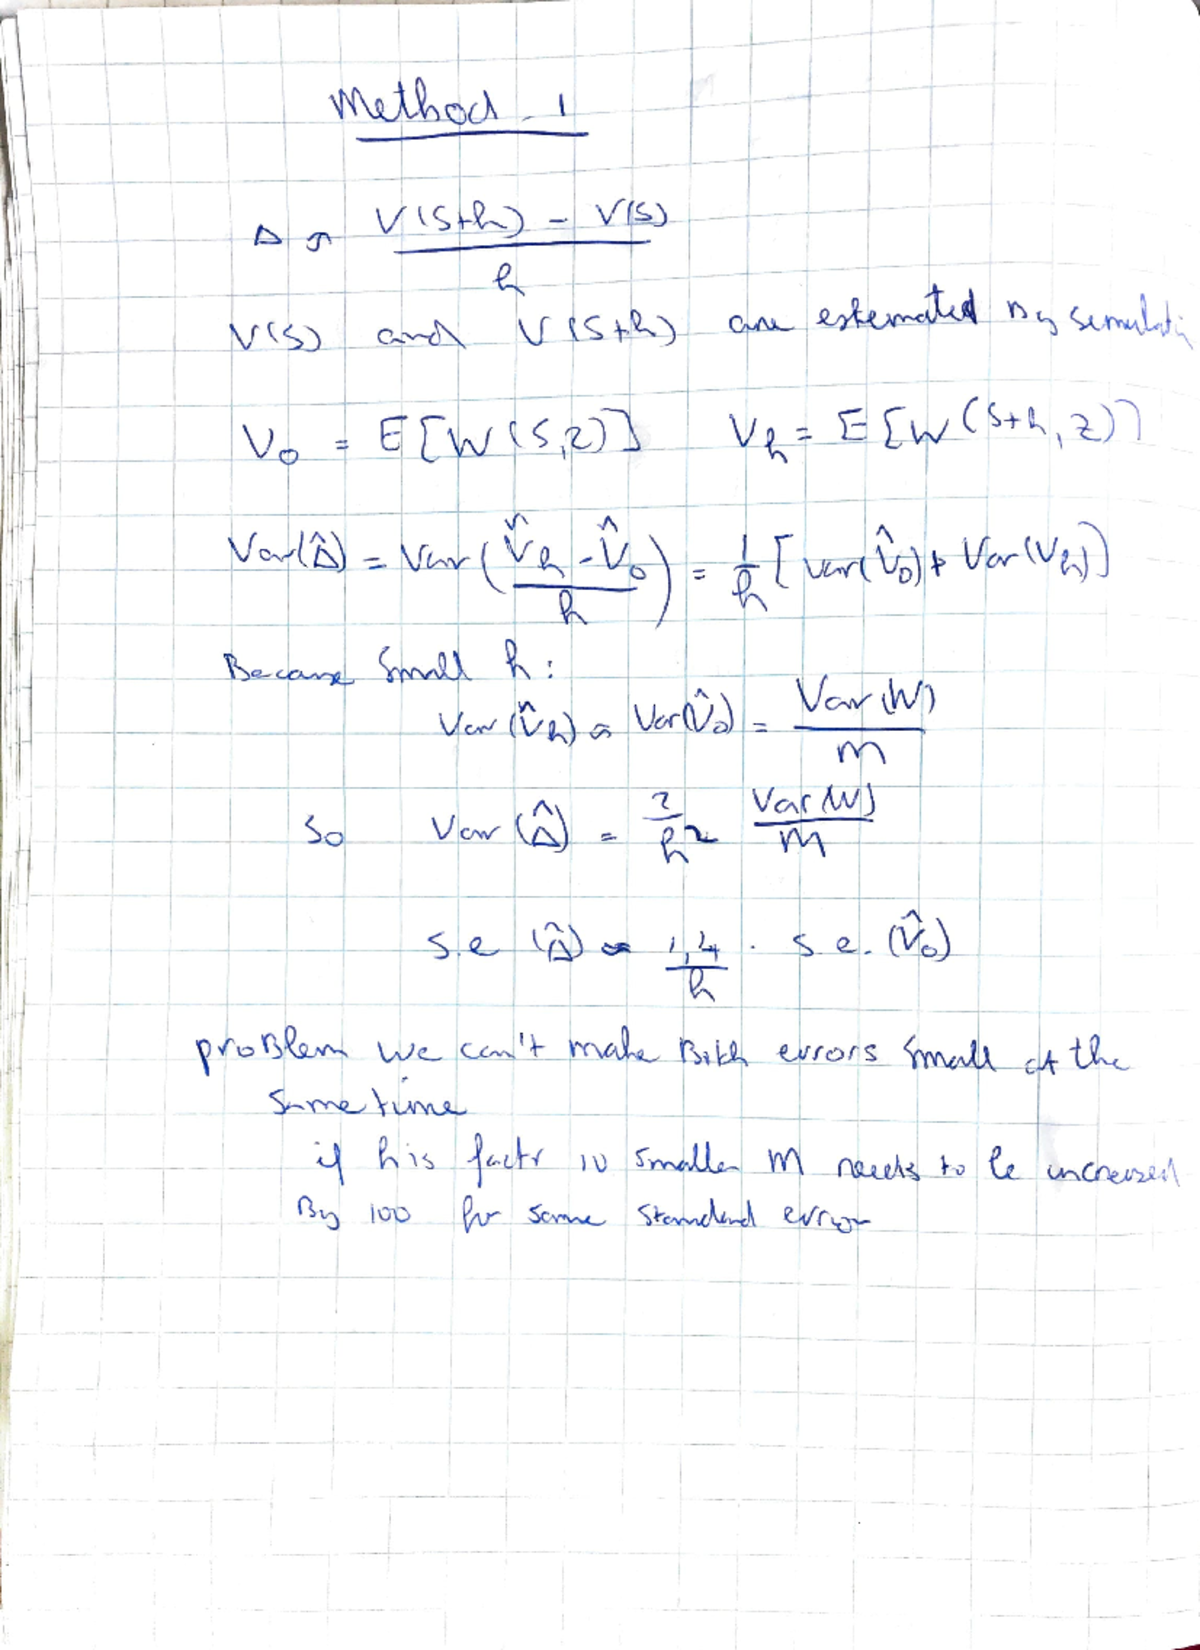 Method - 1
Δ ≈ (V(S+h) - V(S)) / h
V(S) and V(S+h) are estemated By semulati
V₀ = E[W(S,Z)] V_h = E[W(S+h,Z)]
Var(Δ̂) = Var((V̂_h - V̂₀) / h) = 1/h [Var(V̂₀) + Var(V_h)]
Because small h:
Var(V̂_h) ≈ Var(V̂₀) = Var(W) / m
So Var(Δ̂) = 2/h² Var(W)/m
s.e (Δ̂) ≈ 1,4/h · s.e. (V̂₀)
proBlem we can't make Both errors small at the
same time
if h is factr 10 smaller m needs to be increased
By 100 for same standard error